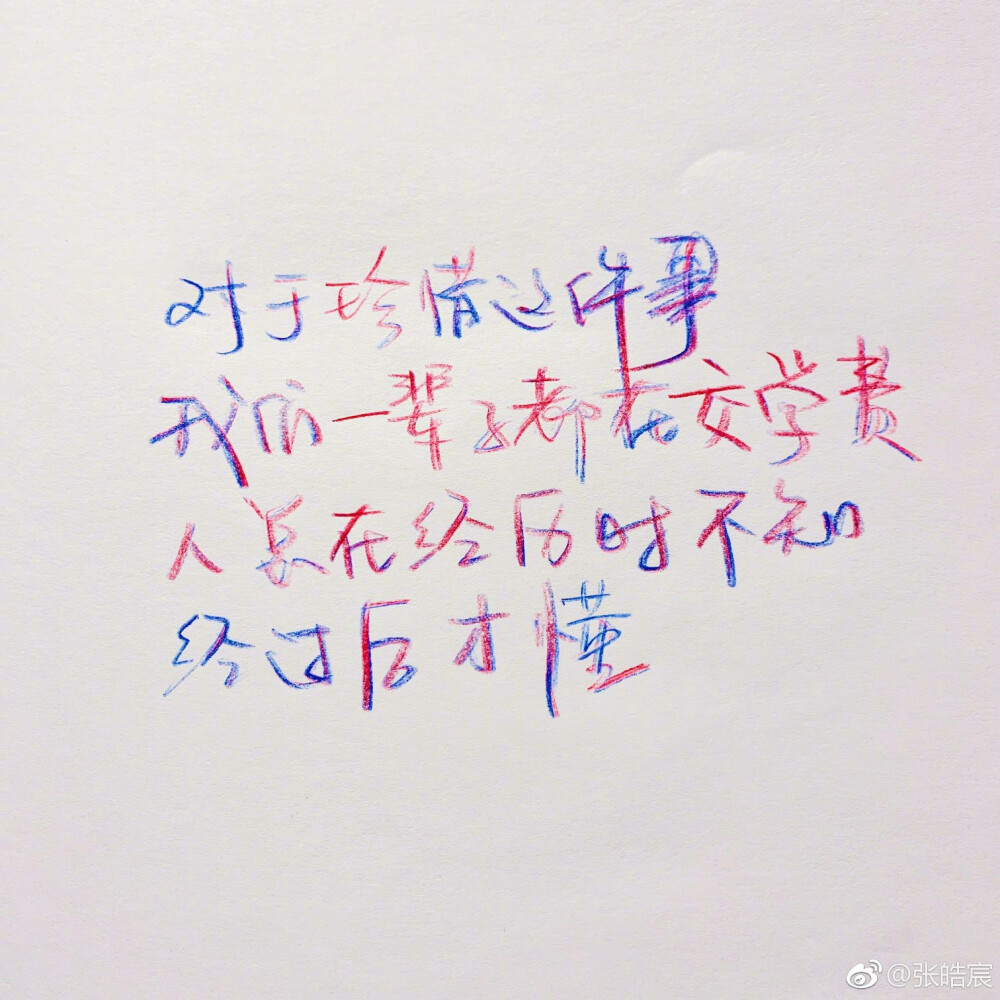 对于珍惜这件事
我们一辈子都在交学费
人总在经历时不知
经过后才懂
@张皓宸